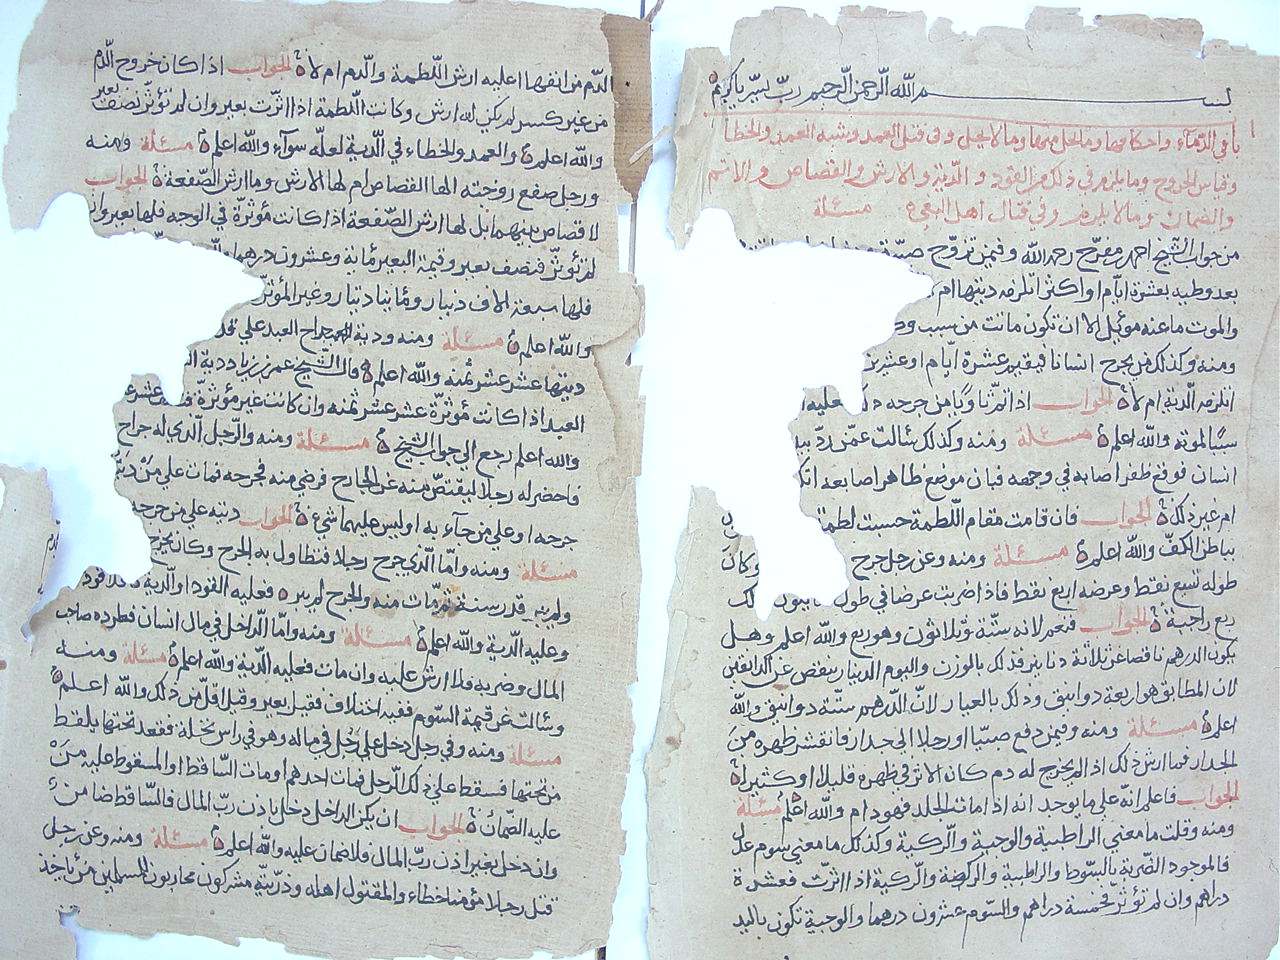 بسم الله الرحمن الرحيم رب يسر يا كريم
باب في الدماء واحكامها وما يحل منها وما لا يحل وفي قتل العمد وشبه العمد والخطا
وقياس الجروح وما يلزم في ذلك من القود والدية والارش والقصاص والاثم
والضمان وما لا يلزم وفي قتال اهل البغي مسئلة
من جواب الشيخ احمد بن مفرج رحمه الله وفيمن تزوج صبية
بعد وطيه بعشرة ايام او اكثر اتلزمه ديتها ام
والموت ما عنه موئل الا ان تكون ماتت من سبب
ومنه وكذلك فيمن يجرح انسانا فيقيم عشرة ايام او عشرين
اتلزمه الدية ام لا الجواب اذا جرحه فعليه
سببا لموته والله اعلم مسئلة ومنه وكذلك سئالت عمن
انسان فوقع ظفر اصابعه في وجهه فبان موضع ظاهر اصابعه
ام غير ذلك الجواب فان قامت مقام اللطمة حسبت لطمة
بباطن الكف والله اعلم مسئلة ومنه وعن رجل جرح وكان
طوله تسع نقط وعرضه اربع نقط فاذا ضربت عرضا في طول يكون
ربع راجبة الجواب فنعم لانه ستة وثلاثون وهو ربع والله اعلم وهل
يكون الدرهم ناقصا عن ثلاثة دنانير فذلك بالوزن واليوم الدينار ينقص عن الدانقين
لان المطابق هو اربعة دوانيق وذلك بالعيار لان الدرهم ستة دوانيق والله
اعلم مسئلة ومنه وفيمن دفع صبيا او رجلا الى جدار فانقشر ظهره من
الجدار فما ارش ذلك اذا لم يخرج له دم كان الاثر في ظهره قليلا او كثيرا
الجواب فاعلم انه على ما يوجد انه اذا مات الجلد فهو دام والله اعلم مسئلة
ومنه وقلت ما معنى الراطبية والوجبة والركبة وكذلك ما معنى سوم عدل
فالموجود الضربة بالسوط والراطبية والركضة والركبة اذا اثرت فعشرة
دراهم وان لم تؤثر فخمسة دراهم والسوم عشرون درهما والوجبة تكون باليد
الدم من انفها اعليه ارش اللطمة والدم ام لا الجواب اذا كان خروج الدم
من غير كسر لم يكن له ارش وكانت اللطمة اذا اثرت بعير وان لم تؤثر نصف بعير
والله اعلم والعمد والخطاء في الدية لعله سوآء والله اعلم مسئلة ومنه
ورجل صفع زوجته الها القصاص ام لها الارش وما ارش الصفعة الجواب
لا قصاص بينهما بل لها ارش الصفعة اذا كانت مؤثرة في الوجه فلها بعير وان
لم تؤثر فنصف بعير وقيمة البعير مائة وعشرون درهما
فلها سبعة الاف دينار ومائتا دينار وغير المؤثر
والله اعلم مسئلة ومنه ودية جراح العبد على قدر
ديتها عشر عشر ثمنه والله اعلم قال الشيخ عمر بن زياد دية
العبد اذا كانت مؤثرة عشر عشر ثمنه وان كانت غير مؤثرة عشر
والله اعلم رجع الى جواب الشيخ مسئلة ومنه والرجل الذي له جراح
فاحضر له رجلا ليقتص منه عن الجارح فرضي منه فجرحه فمات على من ديته
جرحه او على من جآء به او ليس عليهما شيء الجواب ديته على من جرحه
مسئلة ومنه واما الذي جرح رجلا فتطاول به الجرح وكان يخرج
ولم يبر قدر سنة ثم مات منه والجرح لم يبر فعليه القود او الدية فلا قود
وعليه الدية والله اعلم مسئلة ومنه واما الداخل في مال انسان فطرده صاحب
المال وضربه فلا ارش عليه وان مات فعليه الدية والله اعلم مسئلة ومنه
وسئالت عن قيمة السوم ففيه اختلاف فقيل بعير وقيل اقل من ذلك والله اعلم
مسئلة ومنه وفي رجل دخل على رجل في ماله وهو في راس نخلة فقعد تحتها يلقط
من تحتها فسقط على ذلك الرجل فمات احدهم او مات الساقط او المسقوط عليه من
عليه الضمان الجواب ان يكن الداخل دخل باذن رب المال فالساقط ضامن
وان دخل بغير اذن رب المال فلا ضمان عليه والله اعلم مسئلة ومنه وعن رجل
قتل رجلا مؤمنا خطاء والمقتول اهله وذريته مشركون محاربون للمسلمين من ياخذ